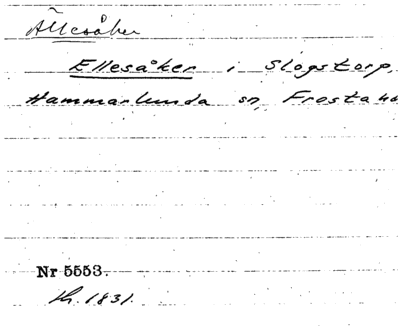 Ällesåker
Ellesåker i Slogstorp,
Hammarlunda sn, Frosta hd
Nr 5553.
1831.